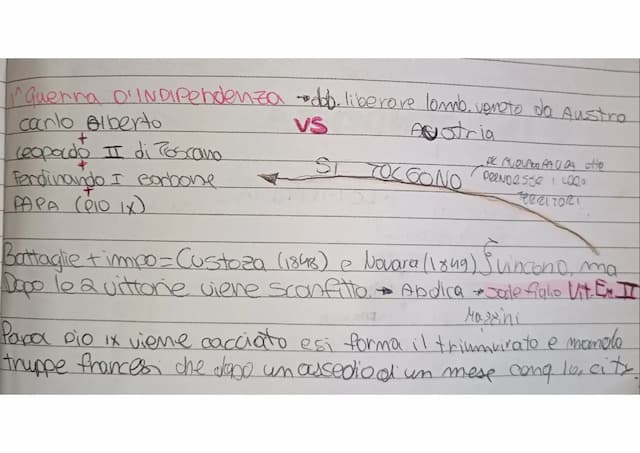 1ª GUERRA D'INDIPENDENZA → dob. liberare lomb. veneto da Austra
Carlo Alberto VS Austria
+
Leopoldo II di Toscana
+
Ferdinando I Borbone SI TOLGONO
+
PAPA (PIO IX)
TERRITORI
Battaglie + impo = Custoza (1848) e Novara (1849) vincono, ma
Dopo le 2 vittorie viene sconfitto → Abdica → sale figlio Vit. Em. II
Mazzini
Papa Pio IX viene cacciato e si forma il triumvirato e manda
truppe francesi che dopo un assedio di un mese conq la city.